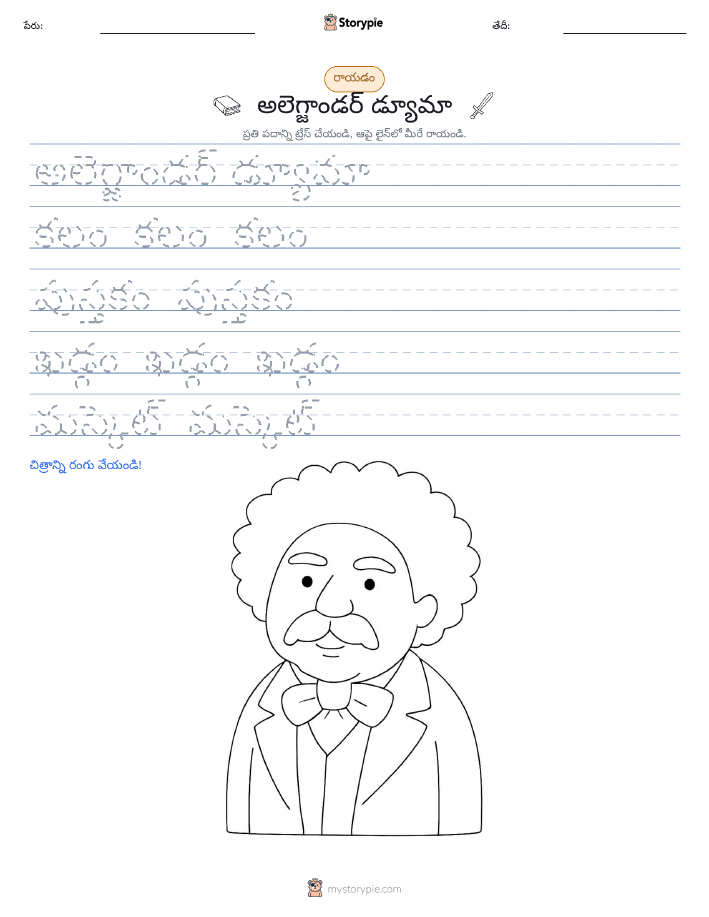 పేరు:
Storypie
తేదీ:
రాయడం
అలెగ్జాండర్ డ్యూమా
ప్రతి పదాన్ని ట్రేస్ చేయండి, ఆపై లైన్‌లో మీరే రాయండి.
అలెగ్జాండర్ డ్యూమా
కలం కలం కలం
పుస్తకం పుస్తకం
ఖడ్గం ఖడ్గం ఖడ్గం
మస్కెట్ మస్కెట్
చిత్రాన్ని రంగు వేయండి!
mystorypie.com